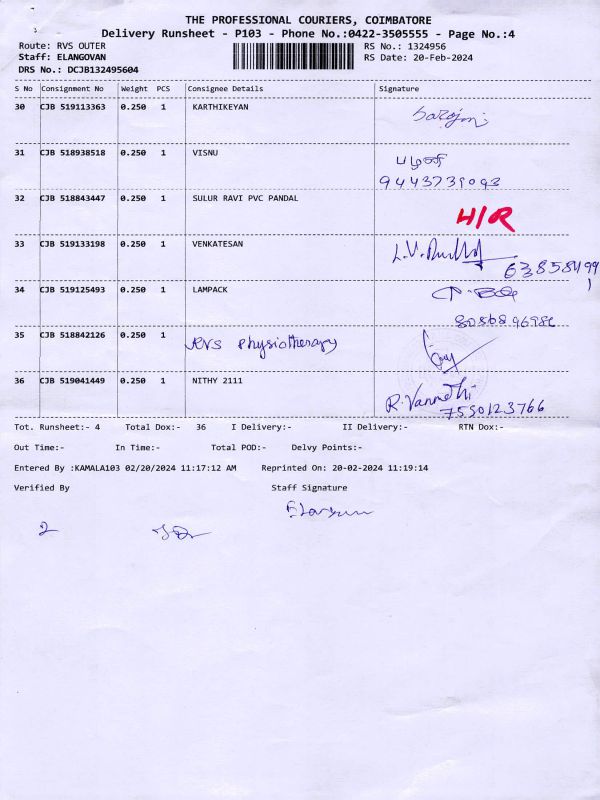 THE PROFESSIONAL COURIERS, COIMBATORE
Delivery Runsheet - P103 - Phone No.:0422-3505555 - Page No.:4
Route: RVS OUTER RS No.: 1324956
Staff: ELANGOVAN RS Date: 20-Feb-2024
DRS No.: DCJB132495604
S No Consignment No Weight PCS Consignee Details Signature
30 CJB 519113363 0.250 1 KARTHIKEYAN
31 CJB 518938518 0.250 1 VISNU பழனி
9443739093
32 CJB 518843447 0.250 1 SULUR RAVI PVC PANDAL H/R
33 CJB 519133198 0.250 1 VENKATESAN
34 CJB 519125493 0.250 1 LAMPACK
35 CJB 518842126 0.250 1 RVS Physiotherapy
36 CJB 519041449 0.250 1 NITHY 2111
7550123766
Tot. Runsheet:- 4 Total Dox:- 36 I Delivery:- II Delivery:- RTN Dox:-
Out Time:- In Time:- Total POD:- Delvy Points:-
Entered By :KAMALA103 02/20/2024 11:17:12 AM Reprinted On: 20-02-2024 11:19:14
Verified By Staff Signature